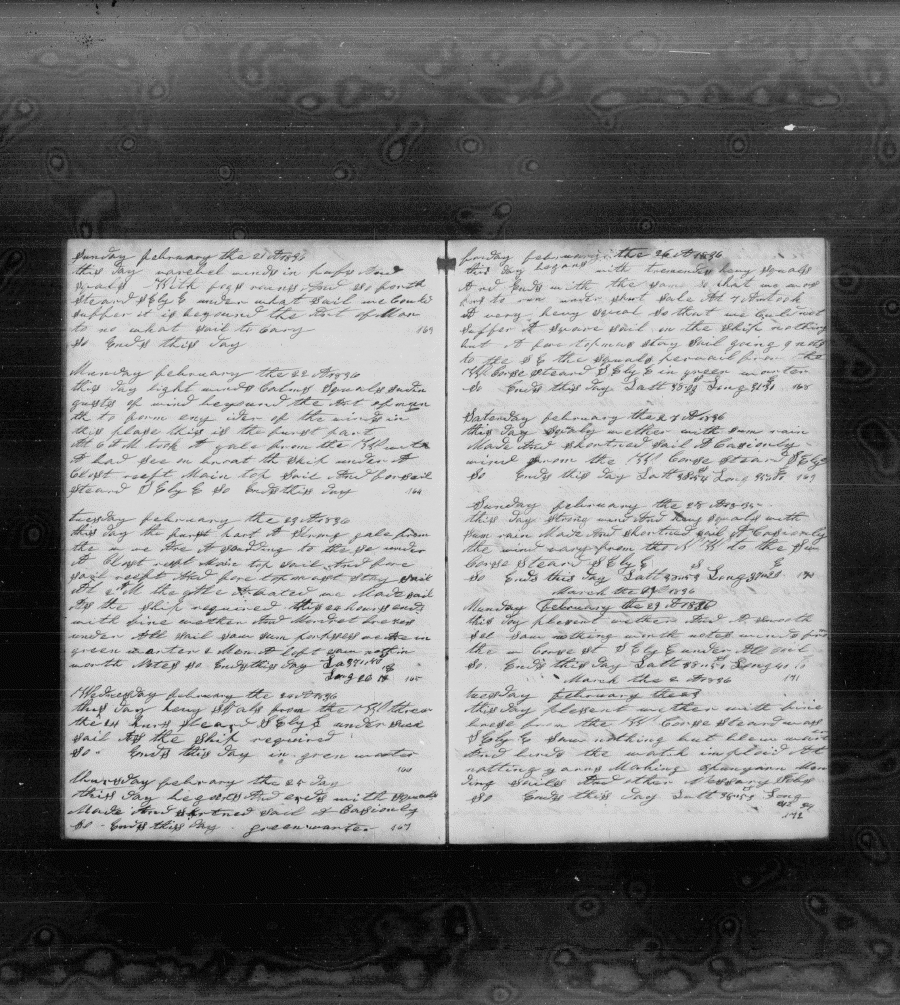 Sunday february the 21 A 1836
this day varebel winds in pufs And
squals With fogs round And so forth
steard S Ely E under what sail we Could
suffer it is beyound the Art of Man
to no what sail to Cary 163
So Ends this day
Munday february the 22 A 1836
this day light winds Calms Squals sudin
gusts of wind beyound the Art of mun
th to form eny ider of the winds in
this place this is the furst part
At 6 A M took A gale from the W with
A had sea on knoat th Ship under A
Clost reeft Main top sail And forsail
Steard S Ely E So Ends this day 164
tuesday february the 23 A 1836
this day the furst part A Strong gale from
the w we Are A Scuding to the se under
A Clost reeft Main top sail And fore
sail reeft And fore topmast Stay sail
At 2 A M the gale Abated we Made sail
As the Ship required this 24 hours ends
with fine wether And Mordret breses
under All sail saw sum porpeses we Are in
green warter & Men A left saw nothin
worth Notes So Ends this day Lat
Long 165
Wednesday february the 24 A 1836
this day hevy Squals from the W threw
the 24 hurs steard S Ely E under such
sail As the Ship required
So Ends this day in gren warter
166
thursday february the 25 day
this day begans And ends with squals
Made And shortned sail A Casionly
So Ends this day green warter 167
friday february the 26 A 1836
this day begans with tremendus hevy squals
And Ends with the same so that we was
fors to run under short sale At 7 A Clock
A very hevy squal so that we Culd not
suffer A square sail on the Ship nothing
but A fore topmas stay sail going 9 nots
to the S E the squals prevail from the
W Corse steard S Ely E in green warter
So Ends this day Latt Long 168
Saterday february the 27 A 1836
this day Squaly wether with sum rain
Made And shortned sail A Casionly
wind from the W Corse steard S Ely
So Ends this day Latt Long 169
Sunday february the 28 A 1836
this day strong wind And hevy squals with
sum rain Made And shortned sail A Casionly
the wind vares from the N W to the S w
Corse steard S Ely E
So Ends this day Latt Long 170
March the 1836
Munday february the 29 A 1836
this day plesent wether And A smooth
see saw nothing worth notes wind from
the w Corse st S Ely E under All sail
So Ends this day Latt Long 171
March the 2 A 1836
tuesday february the
this day plesent wether with fine
brese from the W Corse steard was
S Ely E saw nothing but blew warter
And birds the watch imploid At
notting yarns Making Spunyarn Men
ding sails And other Nessary Jobs
So Ends this day Latt Long
172